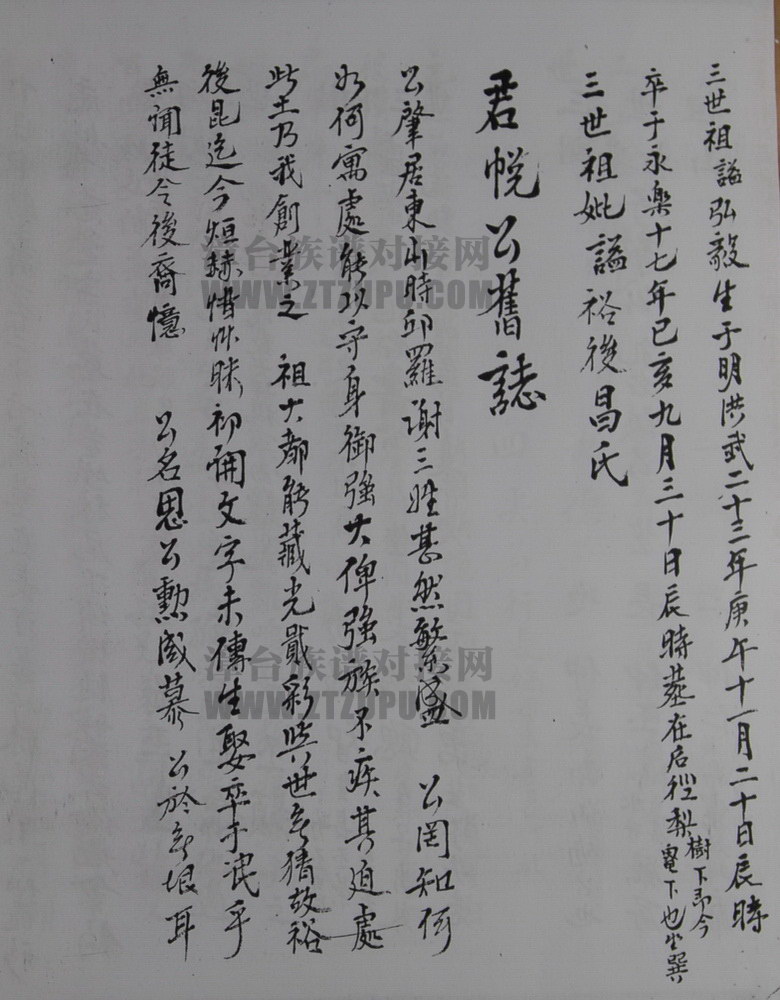 三世祖謚弘毅生于明洪武二十三年庚午十一月二十日辰時
卒于永樂十七年已亥九月三十日辰時葬在后徑梨樹下即今電下也坐巽
三世祖妣謚裕後昌氏
君悅公舊誌
公肇居東山時邱羅謝三姓甚然繁盛 公罔知何
如何寓處能以守身御強大俾強族不疾其迫處
此土乃我創業之 祖大都能藏光韜彩與世無猜故裕
後昆迄今烜赫惜草昧初開文字未傳生娶卒于泯乎
無聞徒令後裔憶 公名思公勲感慕 公於無垠耳
泽台族谱对接网
WWW.ZTZUPU.COM
泽台族谱对接网
WWW.ZTZUPU.COM